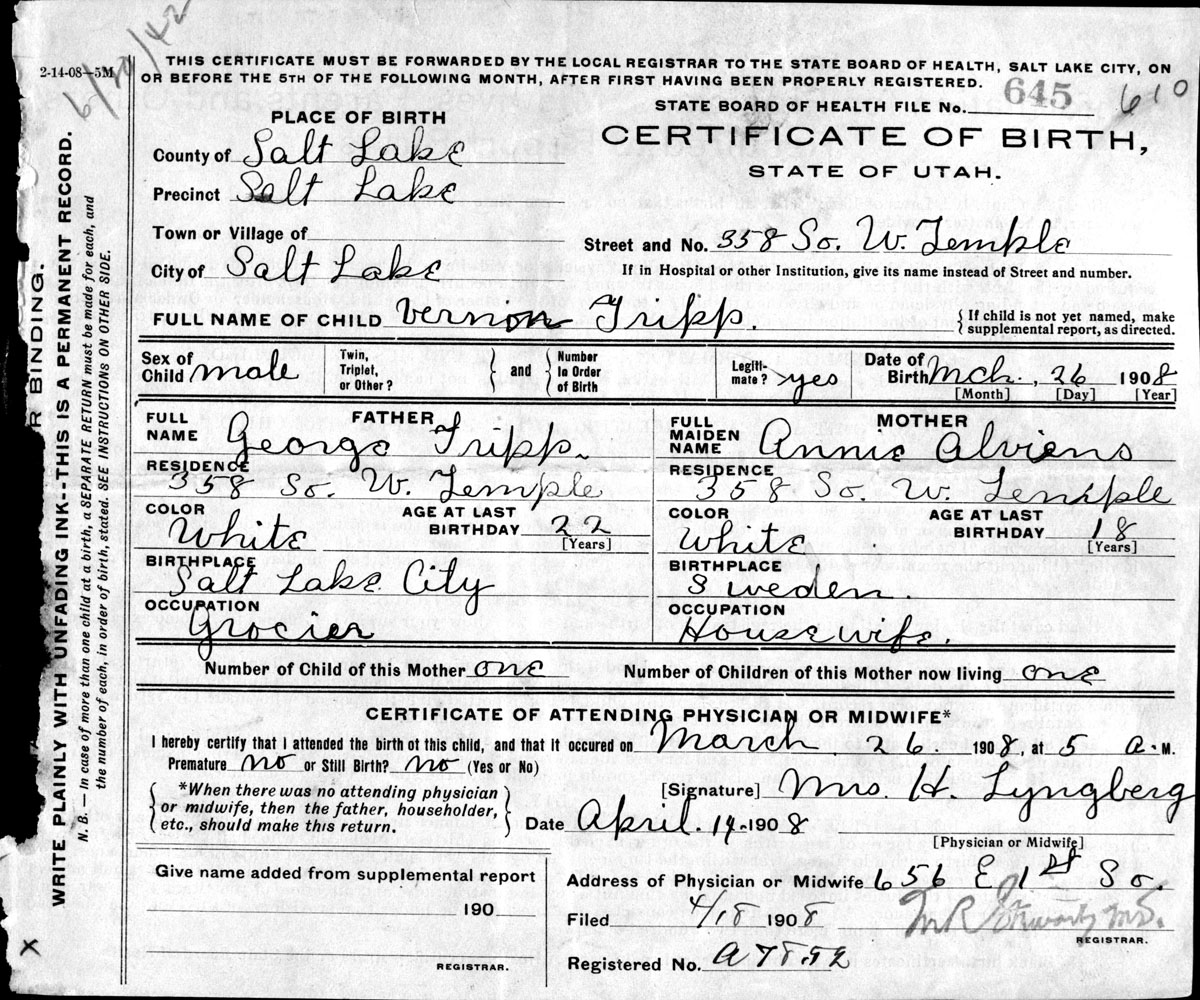 6/20/42
2-14-08—5M
THIS CERTIFICATE MUST BE FORWARDED BY THE LOCAL REGISTRAR TO THE STATE BOARD OF HEALTH, SALT LAKE CITY, ON
OR BEFORE THE 5TH OF THE FOLLOWING MONTH, AFTER FIRST HAVING BEEN PROPERLY REGISTERED.
STATE BOARD OF HEALTH FILE No. 645 610
PLACE OF BIRTH
CERTIFICATE OF BIRTH,
STATE OF UTAH.
County of Salt Lake
Precinct Salt Lake
Town or Village of
Street and No. 358 So. W. Temple
City of Salt Lake
If in Hospital or other Institution, give its name instead of Street and number.
FULL NAME OF CHILD Vernon Tripp. { If child is not yet named, make
supplemental report, as directed.
Sex of Child male Twin, Triplet, or Other? } and { Number In Order of Birth Legiti-mate? yes Date of Birth Mch. 26 1908
[Month] [Day] [Year]
FATHER
FULL NAME George Tripp.
MOTHER
FULL MAIDEN NAME Annie Alviens
RESIDENCE 358 So. W. Temple
RESIDENCE 358 So. W. Temple
COLOR White AGE AT LAST BIRTHDAY 22 [Years]
COLOR White AGE AT LAST BIRTHDAY 18 [Years]
BIRTHPLACE Salt Lake City
BIRTHPLACE Sweden.
OCCUPATION Grocier
OCCUPATION Housewife.
Number of Child of this Mother one Number of Children of this Mother now living one
CERTIFICATE OF ATTENDING PHYSICIAN OR MIDWIFE*
I hereby certify that I attended the birth of this child, and that it occured on March 26. 1908, at 5 A.M.
Premature no or Still Birth? no (Yes or No)
{ *When there was no attending physician
or midwife, then the father, householder,
etc., should make this return. }
[Signature] Mrs. H. Lyngberg
Date April. 14. 1908
[Physician or Midwife]
Give name added from supplemental report
190
REGISTRAR.
Address of Physician or Midwife 656 E 1st So.
Filed 4/18 1908
REGISTRAR.
Registered No.
R BINDING.
WRITE PLAINLY WITH UNFADING INK--THIS IS A PERMANENT RECORD.
N. B.—In case of more than one child at a birth, a SEPARATE RETURN must be made for each, and
the number of each, in order of birth, stated. SEE INSTRUCTIONS ON OTHER SIDE.
X